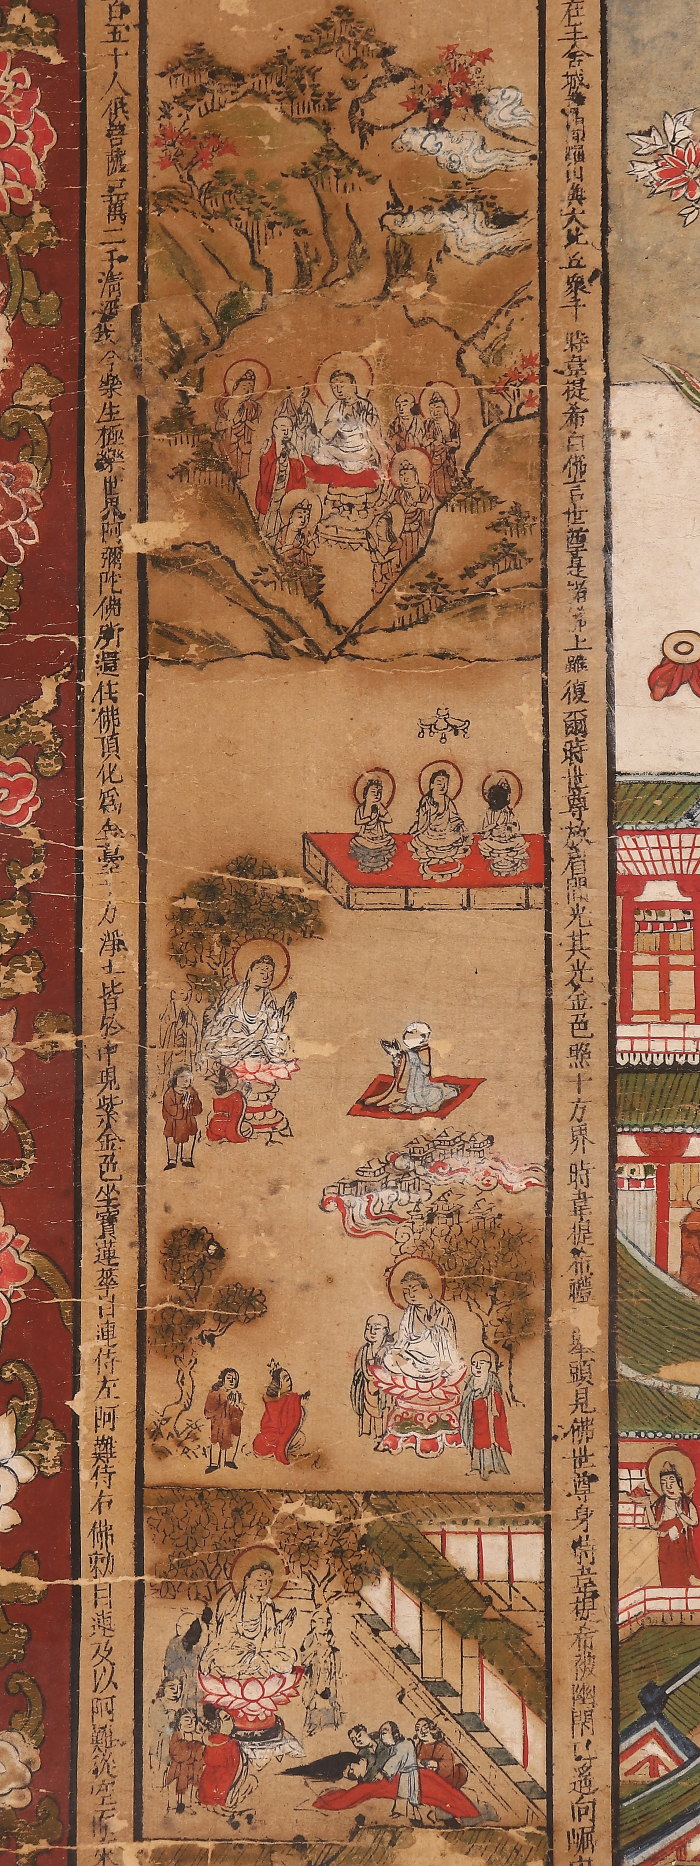 在王舍城耆闍崛山與大比丘衆千 時韋提希白佛言世尊是諸佛土雖復 爾時世尊放眉間光其光金色照十方界 時韋提希禮 舉頭見佛世尊身 時韋提希被幽閉 遥向崛
百五十人俱菩薩三萬二千 清淨我今樂生極樂世界阿彌陀佛所 還住佛頂化爲金臺 方淨土皆於中現 紫金色坐寶蓮華目連侍左阿難侍右 佛勅目連及以阿難從空而來